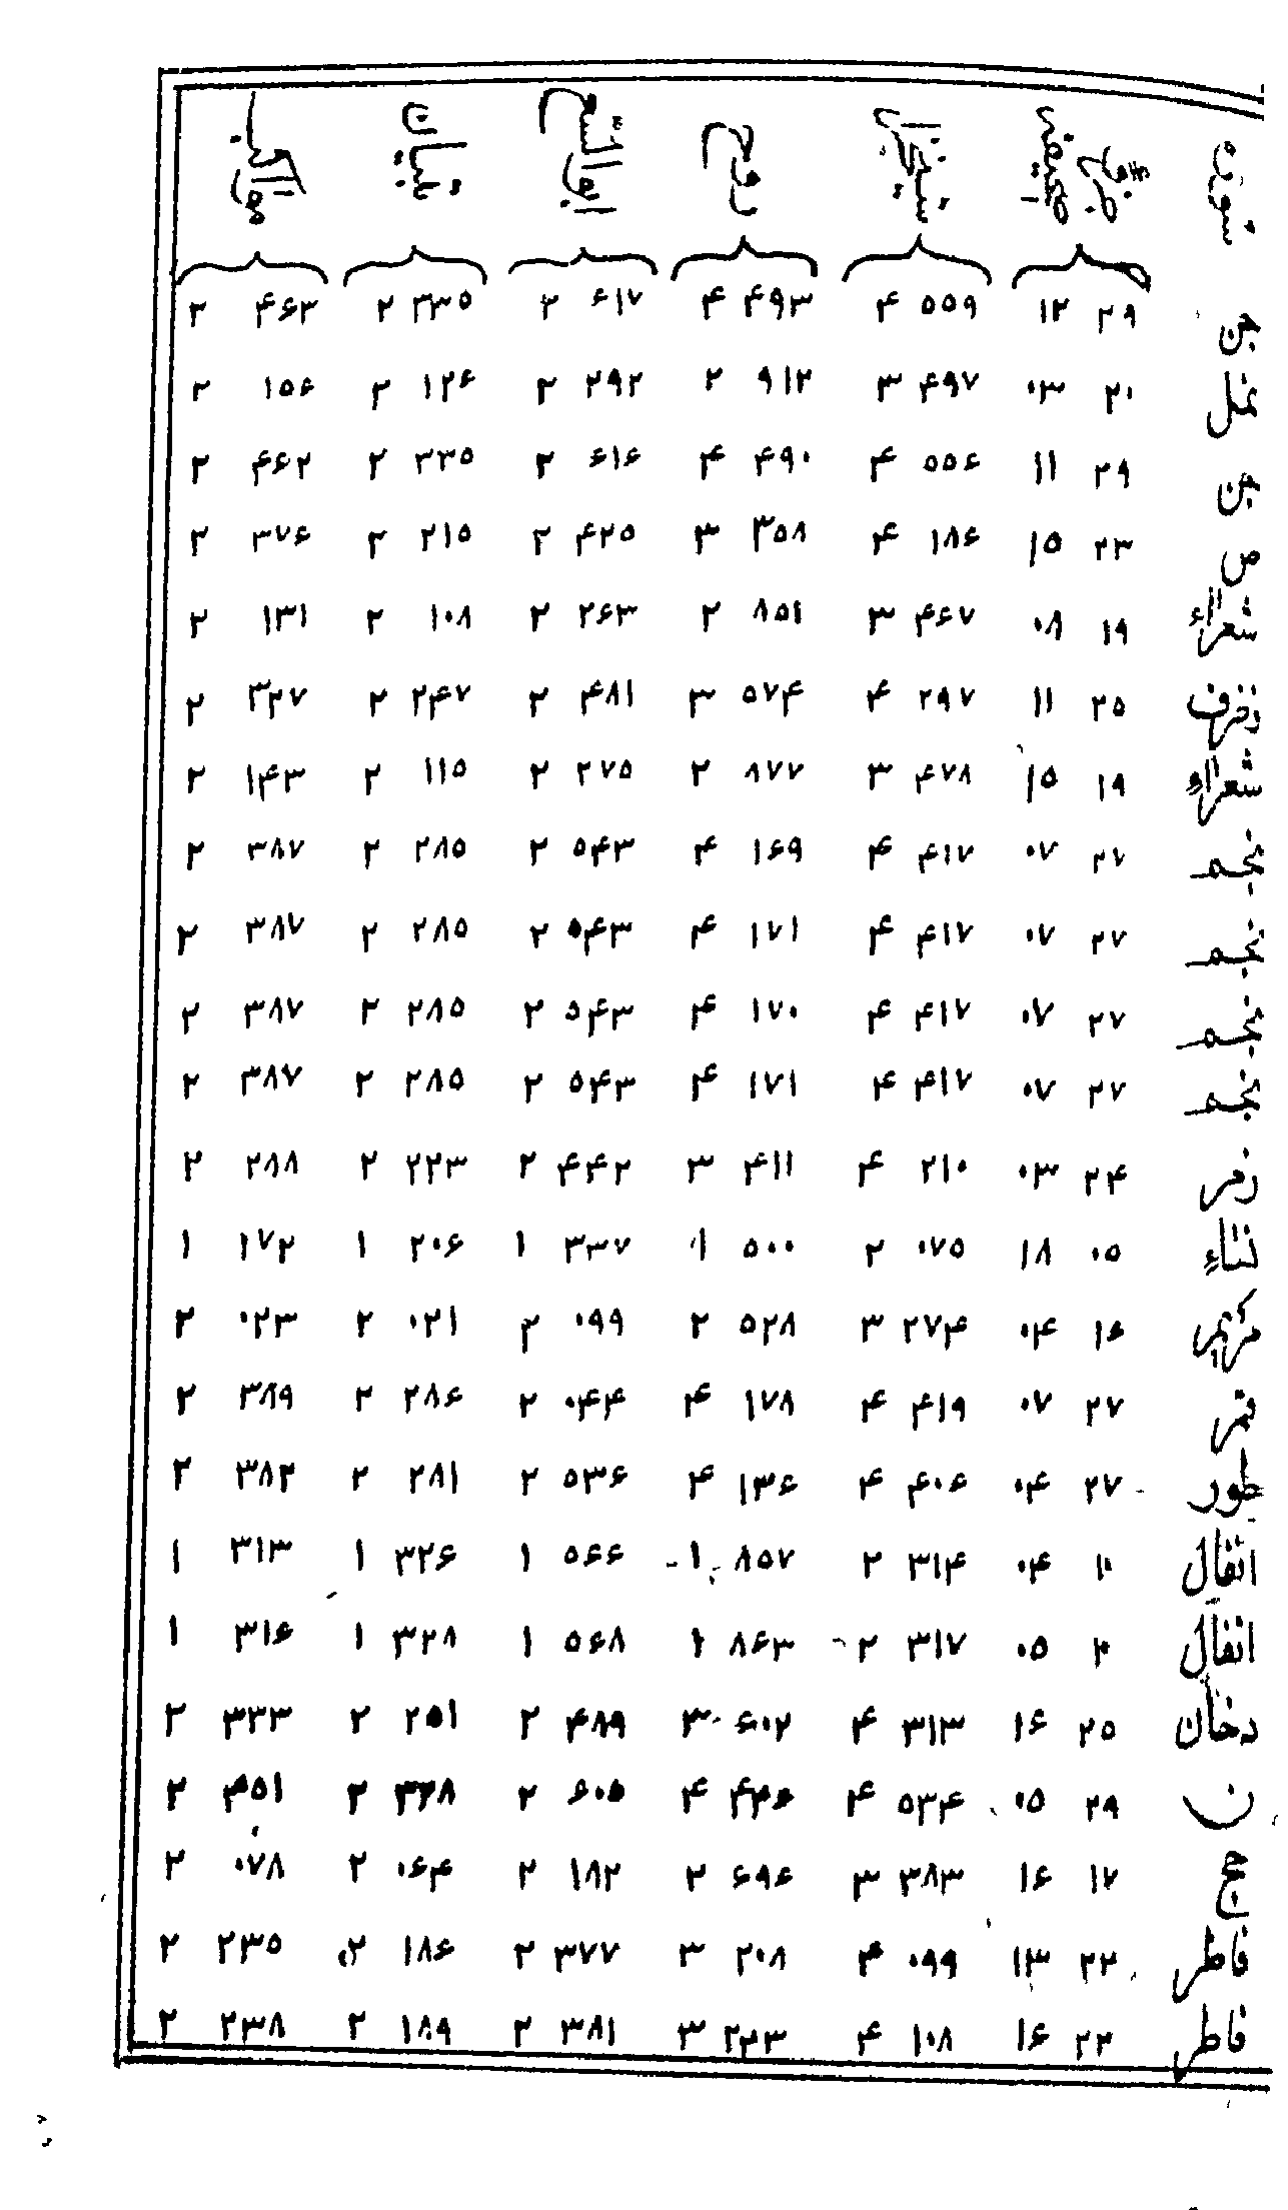 سوره
جن ۲۹ ۱۲ ۵۵۹ ۴ ۴۹۳ ۴ ۶۱۷ ۲ ۳۳۵ ۲ ۴۶۳ ۲
نمل ۲۰ ۰۳ ۴۹۷ ۳ ۹۱۲ ۲ ۲۹۲ ۲ ۱۲۶ ۲ ۱۵۶ ۲
جن ۲۹ ۱۱ ۵۵۶ ۴ ۴۹۰ ۴ ۶۱۶ ۲ ۳۳۵ ۲ ۴۶۲ ۲
ص ۲۳ ۱۵ ۱۸۶ ۴ ۳۵۸ ۳ ۴۲۵ ۲ ۲۱۵ ۲ ۲۷۶ ۲
شعراء ۱۹ ۰۸ ۴۶۷ ۳ ۸۵۱ ۲ ۲۶۳ ۲ ۱۰۸ ۲ ۱۳۱ ۲
زخرف ۲۵ ۱۱ ۲۹۷ ۴ ۵۷۴ ۳ ۴۸۱ ۲ ۲۴۷ ۲ ۳۲۷ ۲
شعراء ۱۹ ۱۵ ۴۷۸ ۳ ۸۷۷ ۲ ۲۷۵ ۲ ۱۱۵ ۲ ۱۴۳ ۲
نجم ۲۷ ۰۷ ۴۱۷ ۴ ۱۶۹ ۴ ۵۴۳ ۲ ۲۸۵ ۲ ۳۸۷ ۲
نجم ۲۷ ۰۷ ۴۱۷ ۴ ۱۷۱ ۴ ۵۴۳ ۲ ۲۸۵ ۲ ۳۸۷ ۲
نجم ۲۷ ۰۷ ۴۱۷ ۴ ۱۷۰ ۴ ۵۴۳ ۲ ۲۸۵ ۲ ۳۸۷ ۲
نجم ۲۷ ۰۷ ۴۱۷ ۴ ۱۷۱ ۴ ۵۴۳ ۲ ۲۸۵ ۲ ۳۸۷ ۲
زمر ۲۴ ۰۳ ۲۱۰ ۴ ۴۱۱ ۳ ۴۴۲ ۲ ۲۲۳ ۲ ۲۸۸ ۲
نساء ۰۵ ۱۸ ۰۷۵ ۲ ۵۰۰ ۱ ۳۳۷ ۱ ۲۰۶ ۱ ۱۷۲ ۱
مریم ۱۶ ۰۴ ۲۷۴ ۳ ۵۲۸ ۲ ۰۹۹ ۲ ۰۲۱ ۲ ۰۲۳ ۲
قمر ۲۷ ۰۷ ۴۱۹ ۴ ۱۷۸ ۴ ۰۴۴ ۲ ۲۸۶ ۲ ۳۸۹ ۲
طور ۲۷ ۰۴ ۴۰۶ ۴ ۱۳۶ ۴ ۵۳۶ ۲ ۲۸۱ ۲ ۳۸۲ ۲
انفال ۱۰ ۰۴ ۳۱۴ ۲ ۸۵۷ ۱ ۵۶۶ ۱ ۳۲۶ ۱ ۳۱۳ ۱
انفال ۰۵ ۳۱۷ ۲ ۸۶۳ ۱ ۵۶۸ ۱ ۳۲۸ ۱ ۳۱۶ ۱
دخان ۲۵ ۱۶ ۳۱۳ ۴ ۶۰۲ ۳ ۴۸۹ ۲ ۲۵۱ ۲ ۳۳۳ ۲
ن ۲۹ ۰۵ ۵۳۴ ۴ ۴۳۶ ۴ ۶۰۵ ۲ ۳۲۸ ۲ ۴۵۱ ۲
حج ۱۷ ۱۶ ۳۸۳ ۳ ۶۹۶ ۲ ۱۸۲ ۲ ۰۶۴ ۲ ۰۷۸ ۲
فاطر ۲۲ ۱۳ ۰۹۹ ۴ ۲۰۸ ۳ ۳۷۷ ۲ ۱۸۶ ۲ ۲۳۵ ۲
فاطر ۲۲ ۱۶ ۱۰۸ ۴ ۲۲۳ ۳ ۳۸۱ ۲ ۱۸۹ ۲ ۲۳۸ ۲